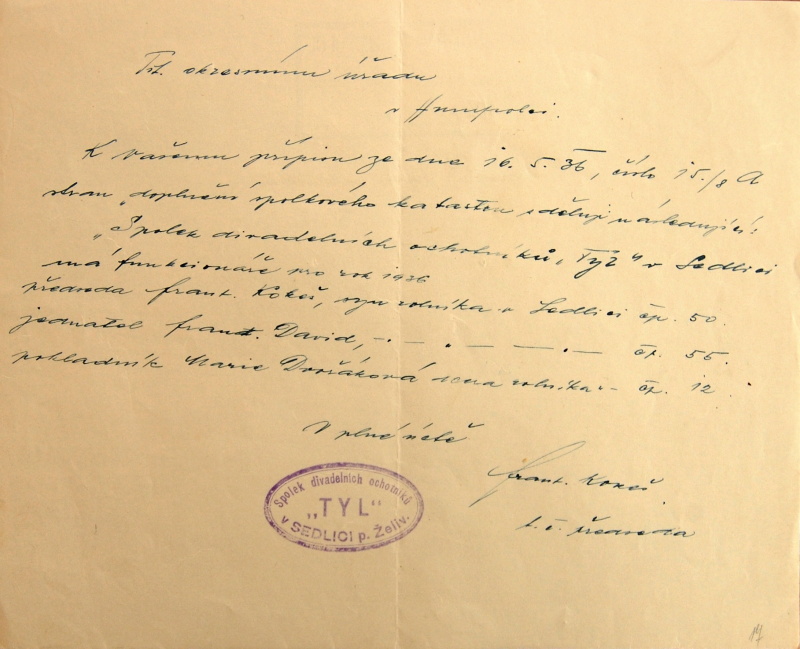 Tit. okresnímu úřadu
v Humpolci.
K Vašemu přípisu ze dne 16. 5. 36, číslo 15./8 A
stran „doplnění spolkového katastru sděluji následující:
„Spolek divadelních ochotníků „Tyl" v Sedlici
má funkcionáře pro rok 1936
předseda Frant. Kokeš, syn rolníka v Sedlici čp. 50.
jednatel Frant. David, -·- · - - -·- čp. 55.
pokladník Marie Dvořáková dcera rolníka -„- čp. 12.
V plné úctě
Frant. Kokeš.
t. č. předseda
Spolek divadelních ochotníků
„TYL"
v SEDLICI p. Želiv.